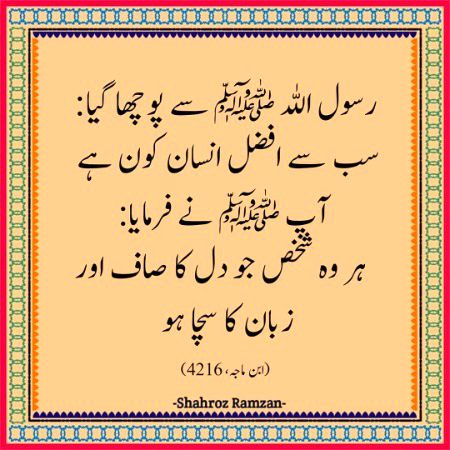 رسول اللہ ﷺ سے پوچھا گیا:
سب سے افضل انسان کون ہے
آپ ﷺ نے فرمایا:
ہر وہ شخص جو دل کا صاف اور
زبان کا سچا ہو
(ابن ماجہ، 4216)
-Shahroz Ramzan-